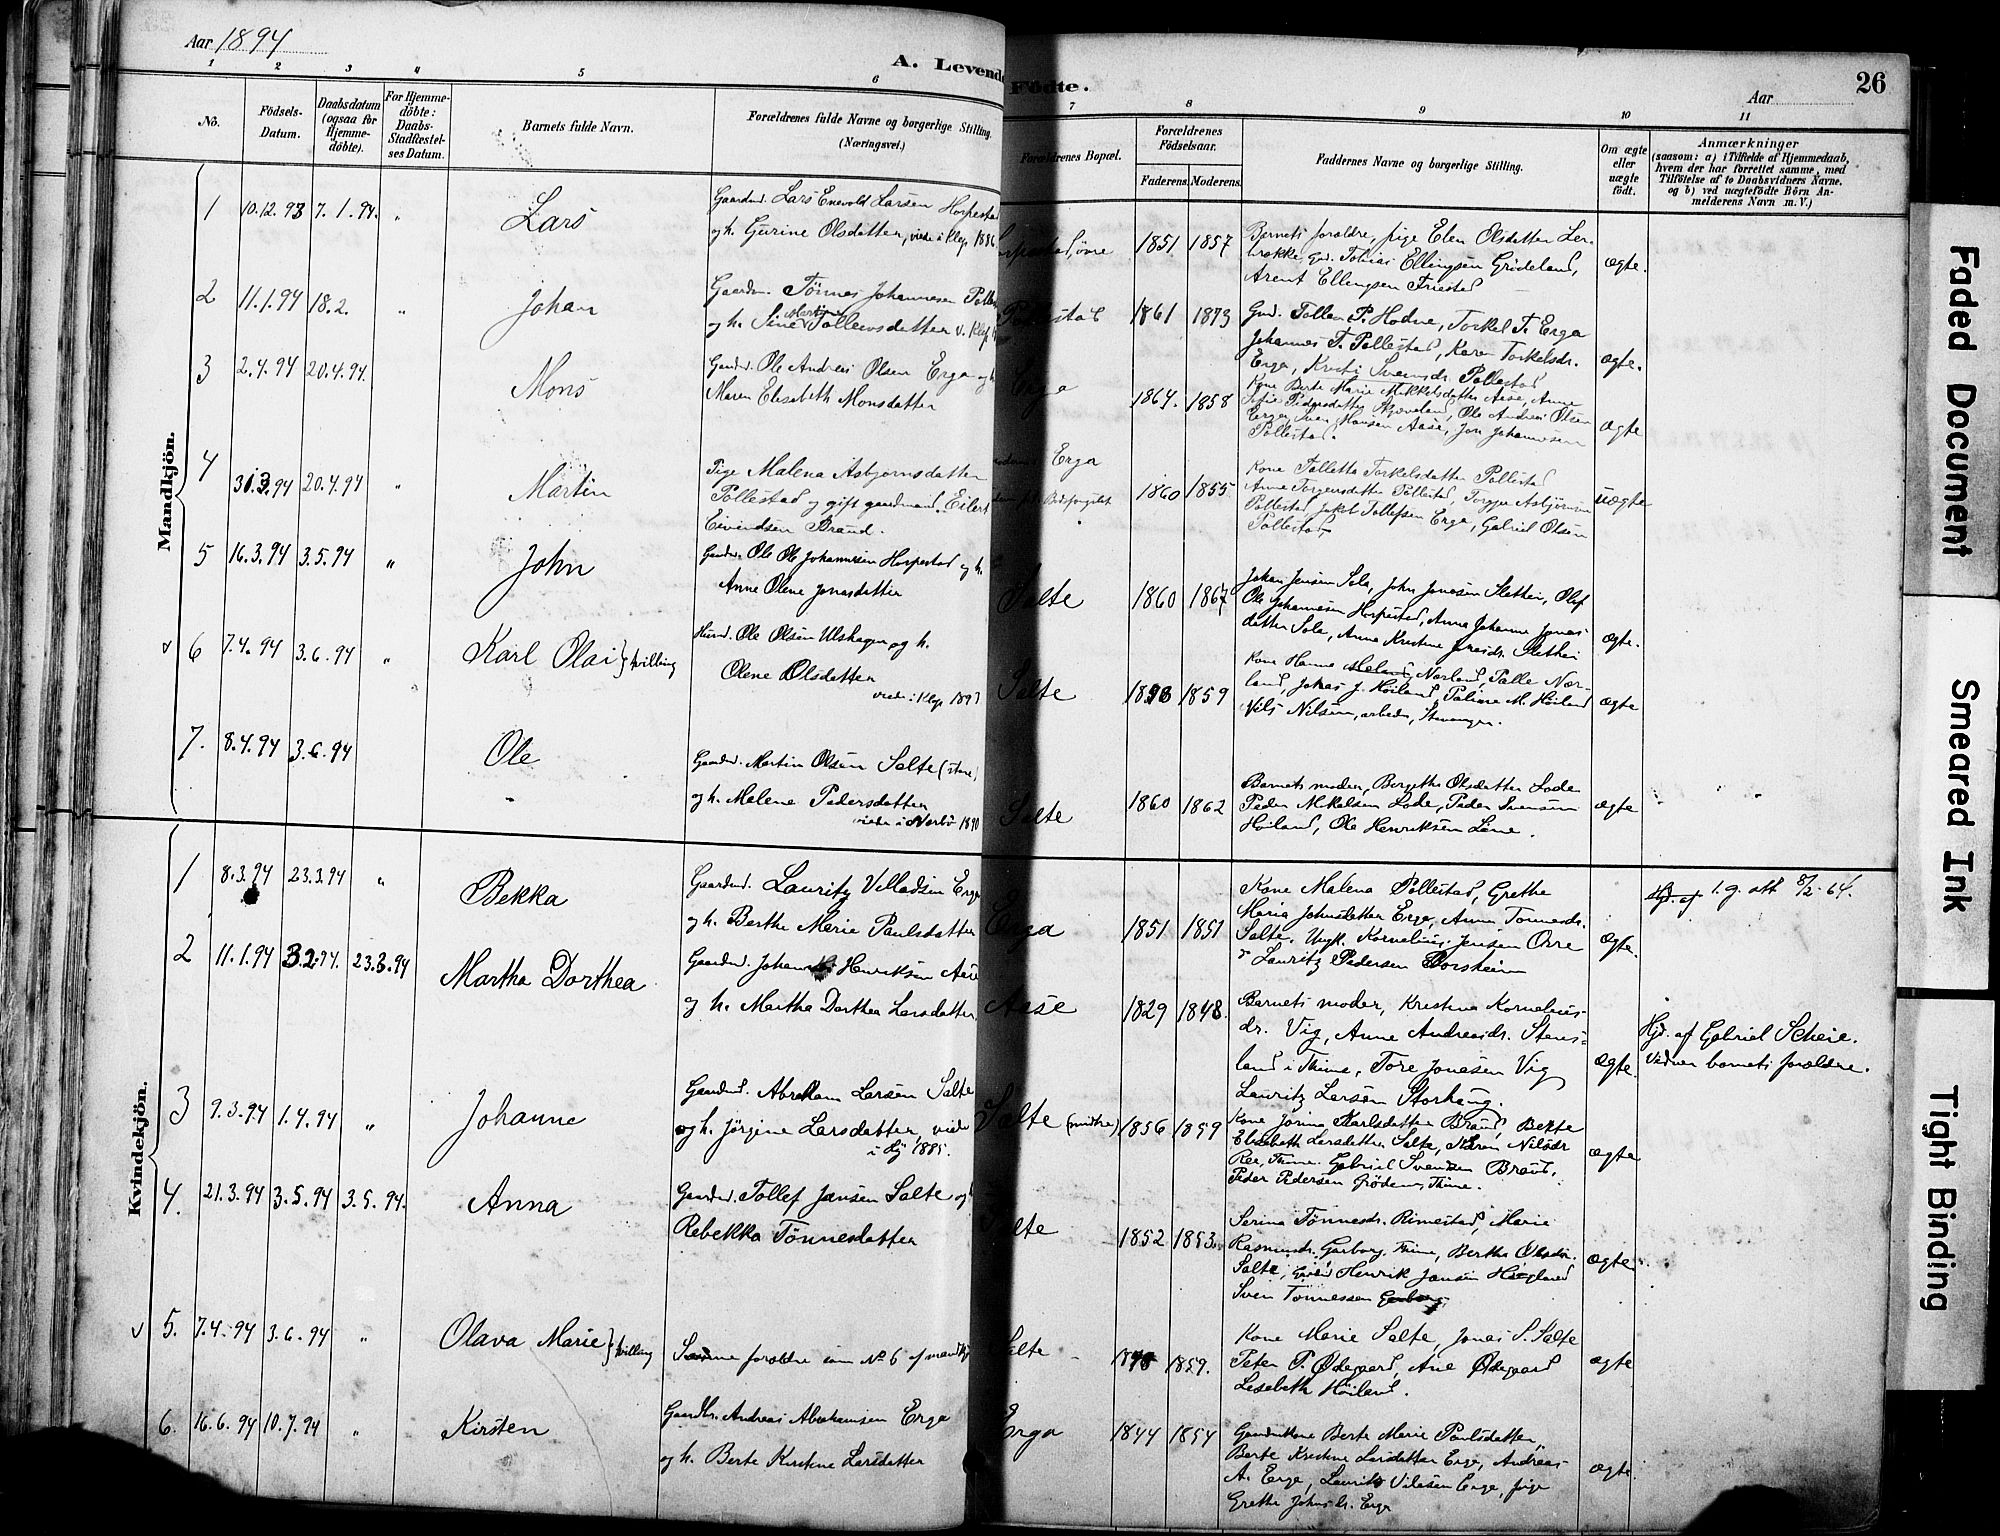 Aar 1894
A. Levende Fødte.
Aar
26
1 2 3 4 5 6 7 8 9 10 11
No.
Födsels-Datum.
Daabsdatum (ogsaa for Hjemme-döbte).
For Hjemme-döbte: Daabs-Stadfæstel-ses Datum.
Barnets fulde Navn.
Forældrenes fulde Navne og borgerlige Stilling. (Næringsvei.)
Forældrenes Bopæl.
Forældrenes Födselsaar.
Faderens. Moderens.
Faddernes Navne og borgerlige Stilling.
Om ægte eller uægte födt.
Anmærkninger
(saasom: a) i Tilfælde af Hjemmedaab,
hvem der har forrettet samme, med
Tilföielse af to Daabsvidners Navne.
og b) ved uægtefödte Börn An-
melderens Navn m. V.)
Mandkjön.
1 10.12.93 7.1.94. " Lars
Gaardm. Lars Enevold Larsen Horpestad
og h. Gurine Olsdatter, viede i Klep 1886.
øvre 1851 1857
Barnets forældre, pige Elen Olsdatter Ler-
brække, gm. Tobias Ellingsen Grödeland,
Arent Ellingsen Friestad
ægte.
2 11.1.94 18.2. " Johan
Gaardm. Tönnes Johannesen
og h. Sine Martine Tollevsdatter v. Klep
1861 1873
Gmd. Tollen P. Hodne, Torkel T. Erga
Johannes T. Pollestad, Karen Torkelsdr.
Erga, Kristi Svensdr. Pollestad
ægte.
3 2.4.94 20.4.94. Mons
Gaardm. Ole Andreas Olsen Erga og h.
Maren Elisabeth Monsdatter
Erga 1864. 1858
Kone Berte Marie Mikkelsdatter Aase, Anne
Sofie Pedersdatter Ole Andreas Olsen
Erga, Sven Hansen Aase, Jon Johannesen
Pollestad.
ægte
4 31.3.94 20.4.94 " Martin
Pige Malena Asbjørnsdatter
Pollestad og gift gaardmand. Eilert
Eivendsen Braud.
Erga
1860 1855
Kone Talletta Torkelsdatter Pollestad
Anne Torgersdatter Pollestad, Torger Asbjørnsen
Pollestad, Jakob Tollefsen Erga, Gabriel Olsen
Pollestad
uægte
5 16.3.94 3.5.94 " John
Gaardm. Ole Ole Johannesen Horpestad og h.
Anne Olene Jonasdatter
Salte 1860 1867
Johan Jensen Sola, John Jonasen Slethei, Olef
Ole Johannesen Horpestad, Anna Johanne Jonas-
datter Sola, Anna Kristine Jonasdr. Slethei
ægte.
v 6 7.4.94 3.6.94 " Karl Olai } tvilling
Husmd. Ole Olsen Ulshagen og h.
Olene Olsdatter
viede i Klep 1893
Salte 1859
Kone Hanne Norland, Palle Nor-
land, Jakas J. Höiland, Paline M. Höiland
Nils Nilsen, arbeder, Stavanger.
ægte
7. 8.4.94 3.6.94 Ole
Gaardm. Martin Olsen Salte (store)
og h. Malene Pedersdatter
viede i Nærbö 1890
Salte 1860 1862
Barnets moder, Bergithe Olsdatter Lode
Peder Mikelsen Lode, Peder Svensen
Höiland, Ole Henriksen Line.
ægte
Kvindekjön.
1 8.3.94 23.3.94 " Bekka
Gaardmd. Lauritz Villadsen Erga
og h. Berthe Marie Paulsdatter
Erga 1851 1851
Kone Malena Pollestad, Grethe
Maria Johnsdatter Erga, Anna Tonnesdr.
Salte. Ungk. Kornelius Jensen Orre
Lauritz Pedersen
ægte.
I.g. att 8/2-64.
2 11.1.94 3.2.94. 23.3.94 Martha Dorthea
Gaardmd. Johannes Henriksen Aase
og h. Martha Dorthea Larsdatter
Aase 1829 1848.
Barnets moder, Kristina Kornelius-
dr. Vig, Anne Andreasdr. Stens-
land i Thime, Tore Jonasen Vig
Lauritz Larsen Storhaug.
ægte.
Hjd. af Gabriel Scheie.
Vidner barnets forældre.
3 9.3.94 1.4.94 " Johanne
Gaardmd. Abraham Larsen Salte
og h. Jörgine Larsdatter, viede
i Hå 1885.
Salte (midtre) 1856 1859
Kone Jorina Karlsdatter Braud, Bekte
Elisabeth Larsdatter Salte, Karen Nilsdr
Ree, Thime. Gabriel Svendsen Braud,
Peder Pedersen Gröden, Thime.
ægte
4. 21.3.94 3.5.94 3.5.94. Anna
Gaardm. Tollef Jansen Salte og h
Rebekka Tönnesdatter
Salte 1852 1853
Serina Tönnesdr. Rimestad, Marie
Rasmusdr. Garborg, Thime, Berthe Olsdr.
Salte, Henrik Jansen
Sven Tönnessen Garborg
ægte
v 5. 7.4.94 3.6.94 " Olava Marie } tvilling
Samme forældre som No 6 af mandkj
Salte 1859.
Kone Marie Salte, Jonas S. Salte
Peter P. Ödegaard, Ane Ødegaard
Lisebeth Höiland.
ægte
6. 16.6.94 10.7.94 " Kirsten
Gaardbr. Andreas Abrahamsen Erga
og h. Berte Kirstine Larsdatter
Erga 1844 1854
Gaardmkone Berte Marie Paulsdatter,
Berte Kristine Larsdatter Erga, Andreas
A. Erga, Laurits Vilasen Erga, pige
Grethe Johnsdr. Erga
ægte.
Faded Document
Smeared Ink
Tight Binding